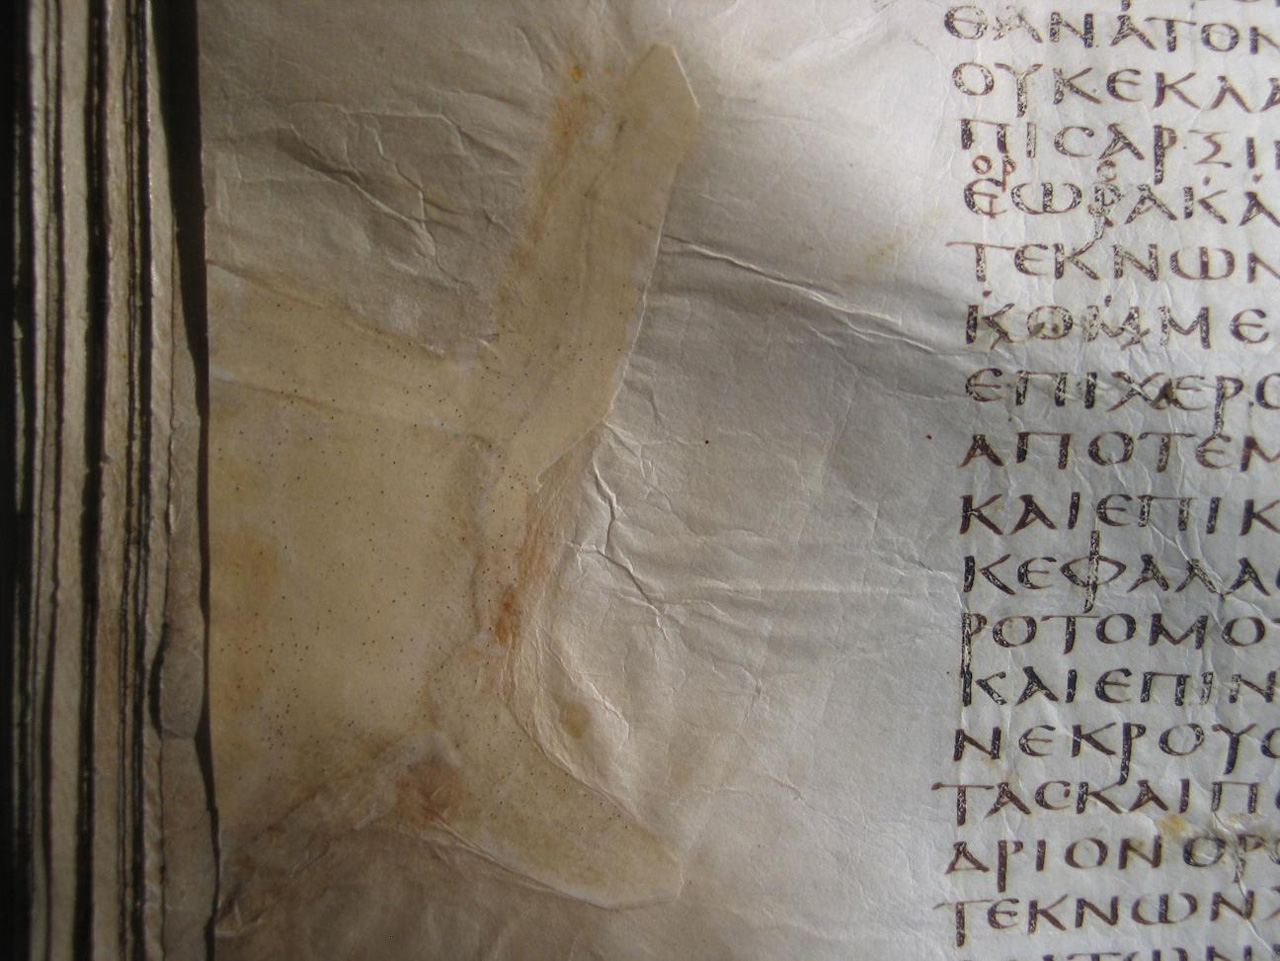 ΘΑΝΑΤΟΝ
ΟΥΚΕΚΛΑ
ΠΙϹΑΡΣΙ
ΟΡ
ΕΩΡΑΚΑ
ΤΕΚΝΩΝ
ΚΟΜΜΕ
ΕΠΙΧΕΡΟ
ΑΠΟΤΕΜ
ΚΑΙΕΠΙΚ
ΚΕΦΑΛΑϹ
ΡΟΤΟΜΟ
ΚΑΙΕΠΙΝ
ΝΕΚΡΟΥϹ
ΤΑϹΚΑΙΠΟ
ΔΡΙΟΝΟΡ
ΤΕΚΝΩΝ